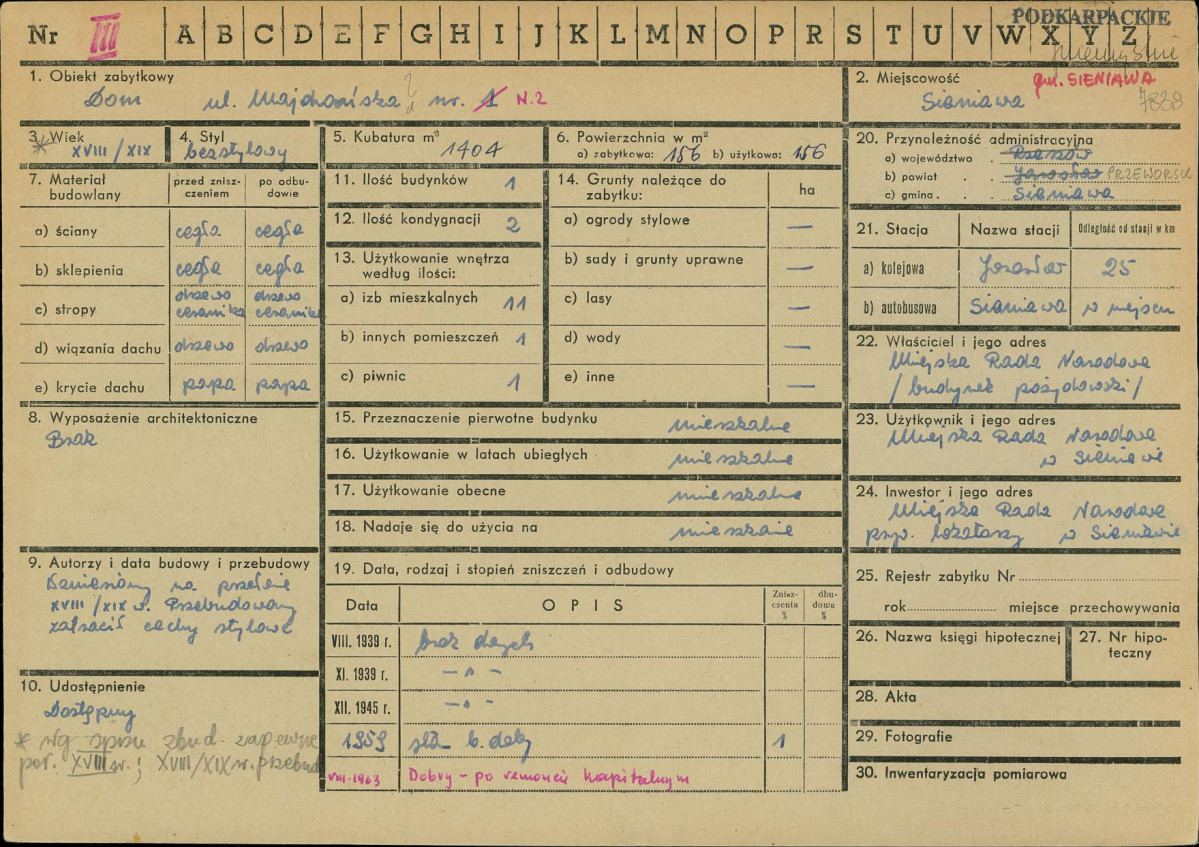 PODKARPACKIE
Nr III A B C D E F G H I J K L M N O P R S T U V W X Y Z
1. Obiekt zabytkowy
Dom ul. nr. 1 N.2
2. Miejscowość gm. SIENIAWA
Sieniawa 7838
3. Wiek
* XVIII/XIX
4. Styl
bezstylowy
5. Kubatura m³
1404
6. Powierzchnia w m²
a) zabytkowa: 156 b) użytkowa: 156
7. Materiał budowlany
przed zniszczeniem
po odbudowie
a) ściany cegła cegła
b) sklepienia cegła cegła
c) stropy drzewo ceramika drzewo ceramika
d) wiązania dachu drzewo drzewo
e) krycie dachu papa papa
8. Wyposażenie architektoniczne
Brak
9. Autorzy i data budowy i przebudowy
Wzniesiony na przełomie
XVIII/XIX w. Przebudowany
zatracił cechy stylowe
10. Udostępnienie
Dostępny
* wg spisu zbud. zapewne
poł. XVIII w.; XVIII/XIX w. przebud
11. Ilość budynków 1
12. Ilość kondygnacji 2
13. Użytkowanie wnętrza
według ilości:
a) izb mieszkalnych 11
b) innych pomieszczeń 1
c) piwnic 1
14. Grunty należące do
zabytku:
ha
a) ogrody stylowe —
b) sady i grunty uprawne —
c) lasy —
d) wody —
e) inne —
15. Przeznaczenie pierwotne budynku mieszkalne
16. Użytkowanie w latach ubiegłych mieszkalne
17. Użytkowanie obecne mieszkalne
18. Nadaje się do użycia na mieszkanie
19. Data, rodzaj i stopień zniszczeń i odbudowy
Data OPIS Zniszczenia % dbudowa %
VIII. 1939 r. brak danych
XI. 1939 r. — " —
XII. 1945 r. — " —
1959 stan b. dobry 1
VIII-1963 Dobry - po remoncie kapitalnym
20. Przynależność administracyjna
a) województwo . Rzeszów
b) powiat . . Jarosław PRZEWORSK
c) gmina . . . Sieniawa
21. Stacja Nazwa stacji Odległość od stacji w km
a) kolejowa Jarosław 25
b) autobusowa Sieniawa w miejscu
22. Właściciel i jego adres
Miejska Rada Narodowa
/budynek pożydowski/
23. Użytkownik i jego adres
Miejska Rada Narodowa
w Sieniawie
24. Inwestor i jego adres
Miejska Rada Narodowa
w Sieniawie
25. Rejestr zabytku Nr
rok miejsce przechowywania
26. Nazwa księgi hipotecznej
27. Nr hipoteczny
28. Akta
29. Fotografie
30. Inwentaryzacja pomiarowa